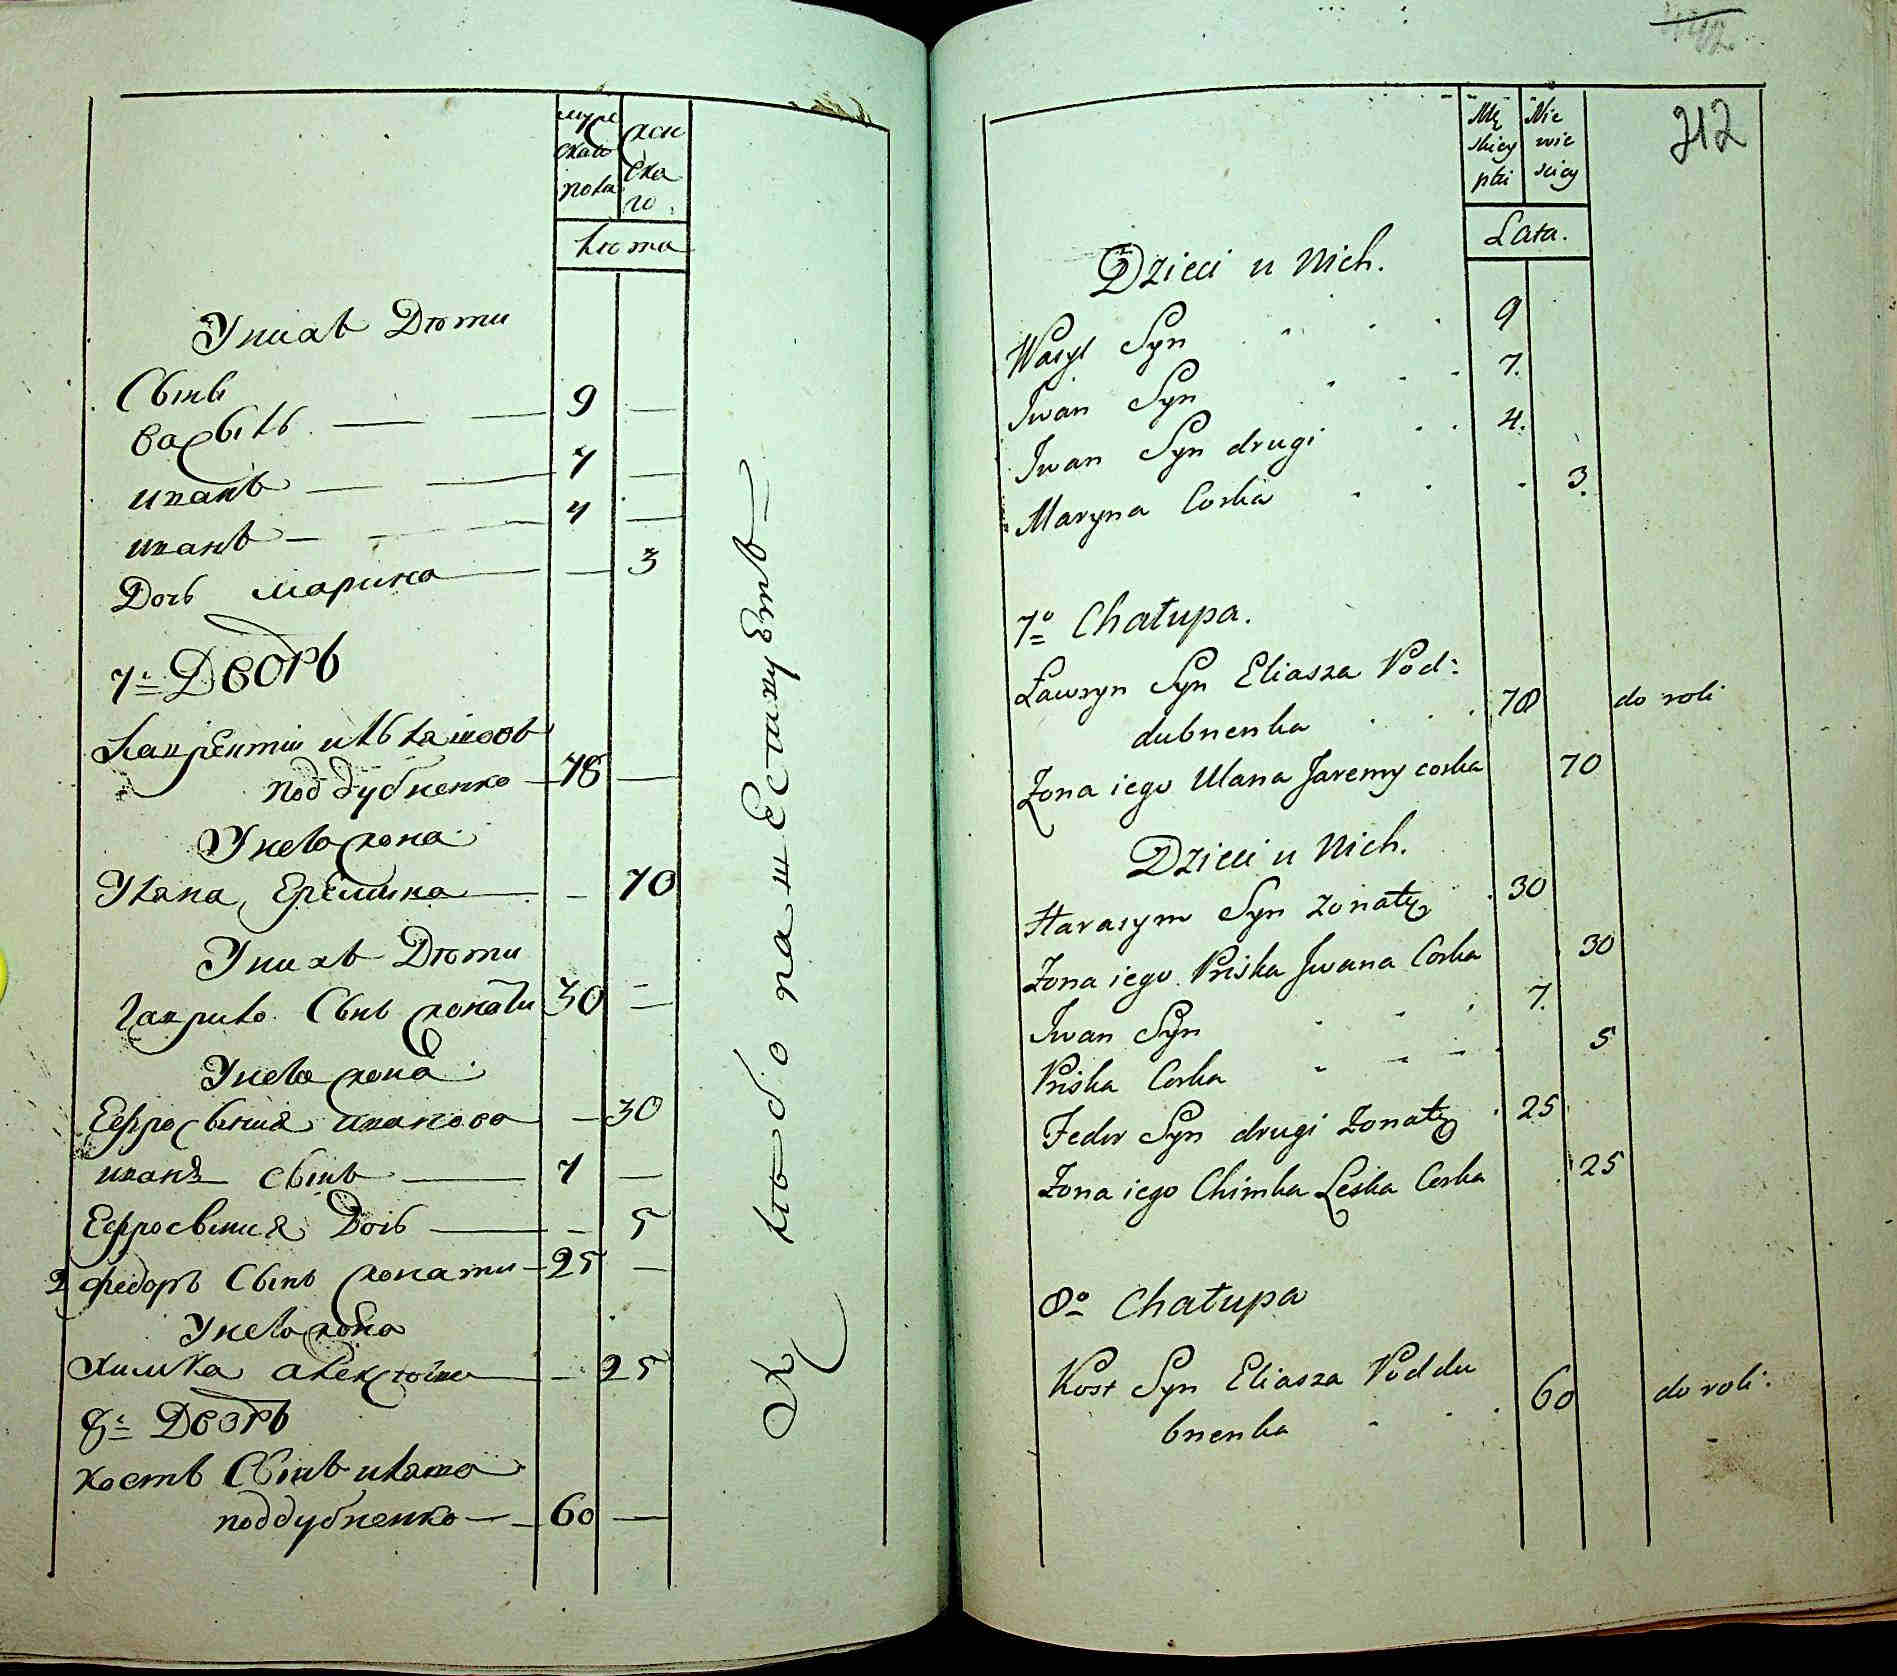 муж
скаго
пола
жен
ска
го
Лѣта
У нихъ Дѣти
Сынъ
василь — — 9 —
иванъ — — 7 —
иванъ — — 4 —
Дочь марина — — 3
7й Дворъ
Лаврентий ильяшовъ
поддубненко — 78 —
У него жена
Уляна, Еремина — – 70
У нихъ Дѣти
Гаврило Сынъ жонати 30 =
У него жена
Ефросыния иванова – 30
иванъ сынъ — 7 —
Ефросыния Дочь — – 5
2 федоръ Сынъ жонати – 25 —
У него жена
химка алексеева — – 25
8й Дворъ
костъ Сынъ иляша
поддубненко — 60 —
К
212
Mę
skiey
płci
Nie
wie
sciey
Lata.
Dzieci u Nich.
Wasyl Syn . . . 9
Iwan Syn . . . 7.
Iwan Syn drugi . . 4.
Maryna Corka . . . 3.
7º Chałupa.
Ławryn Syn Eliasza Pod:
dubnenka . . . 78 do roli
Żona iego Ulana Jaremy corka 70
Dzieci u Nich.
Harasym Syn żonaty . 30
Żona iego Priska Iwana Corka 30
Iwan Syn . . . 7.
Priska Corka . . . . 5
Fedor Syn drugi żonaty . 25
Żona iego Chimka Leska Corka . 25
8º Chałupa
Kost Syn Eliasza Poddu
bnenka . . . 60 do roli.